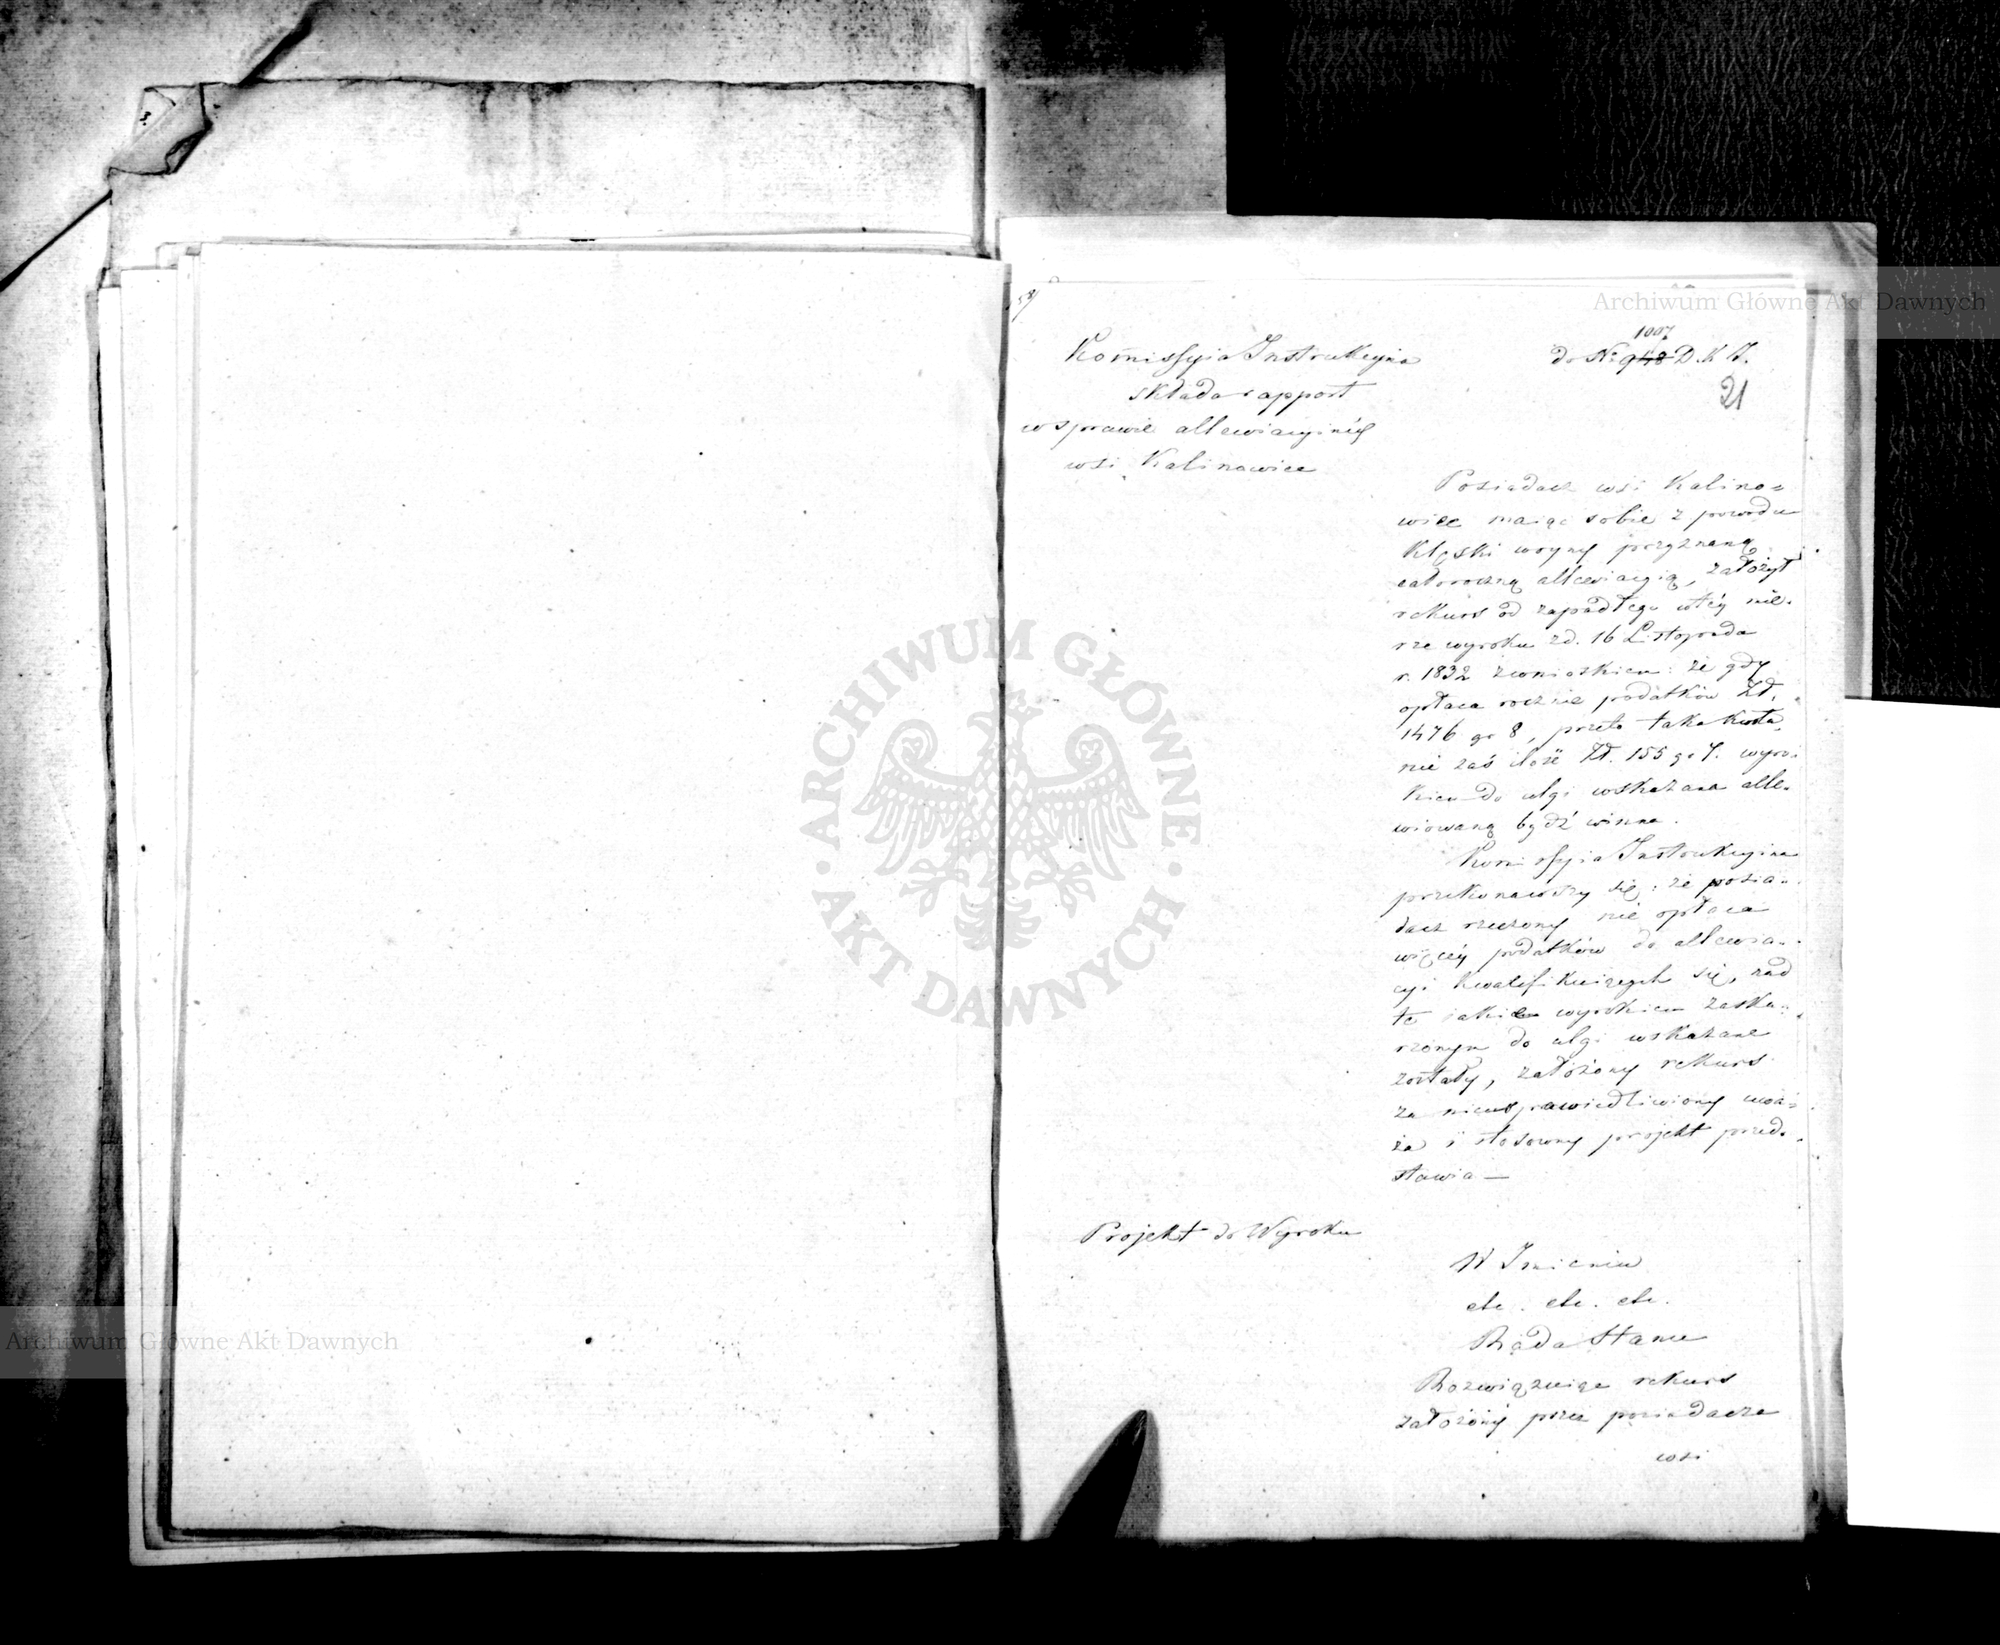 Archiwum Główne Akt Dawnych
1007
do No 948 D. K J.
21
Kommissyia Instrukcyina
składa rapport
w sprawie allewiacyinéy
wsi Kalinowice
Posiadacz wsi Kalino=
wice maiąc sobie z powodu
klęski woyny przyznaną
całoroczną allewiacyią, założył
rekurs od zapadłego w téy mie=
rze wyroku z d. 16 Listopada
r. 1832 z wnioskiem: że gdy
opłaca rocznie podatków Zł.
1476 gr 8, przeto taka kwota,
nie zaś ilość Zł. 155 gr 7. wyro=
kiem do ulgi wskazana alle=
wiowaną bydź winna.
Kommissyia Instrukcyina
przekonawszy się: że posia=
dacz rzeczony nie opłaca
więcéy podatków do allewia=
cyi kwalifikuiących się, nad
te iakie wyrokiem zaska=
rżonym do ulgi wskazane
zostały, założony rekurs
za nieusprawiedliwiony uwa=
ża i stosowny projekt przed=
stawia —
Projekt do Wyroku
W Imieniu
etc. etc. etc.
Rada Stanu
Rozwiązuiąc rekurs
założony przez posiadacza
wsi
ARCHIWUM GŁÓWNE · AKT DAWNYCH ·
Archiwum Główne Akt Dawnych